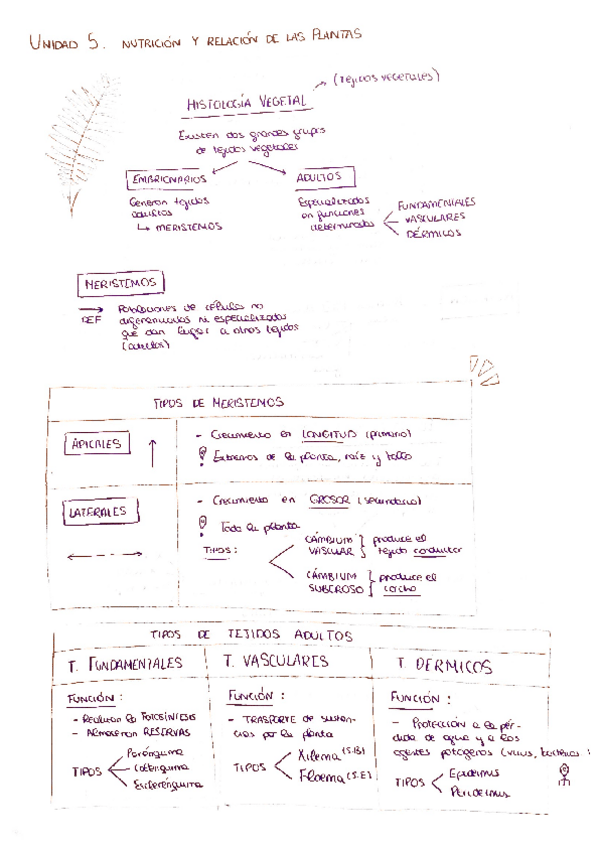 UNIDAD 5. NUTRICIÓN Y RELACIÓN DE LAS PLANTAS
(tejidos vegetales)
HISTOLOGÍA VEGETAL
Existen dos grandes grupos
de tejidos vegetales
EMBRIONARIOS
Generan tejidos
adultos
↳ MERISTEMOS
ADULTOS
Especializados
en funciones
determinadas
FUNDAMENTALES
VASCULARES
DÉRMICOS
MERISTEMOS
→ DEF
Poblaciones de células no
diferenciadas ni especializadas
que dan lugar a otros tejidos
(adultos)
TIPOS DE MERISTEMOS
APICALES
- Crecimiento en LONGITUD (primario)
Extremos de la planta, raíz y tallo
LATERALES
- Crecimiento en GROSOR (secundario)
Toda la planta
TIPOS:
CÁMBIUM VASCULAR } produce el tejido conductor
CÁMBIUM SUBEROSO } produce el corcho
TIPOS DE TEJIDOS ADULTOS
T. FUNDAMENTALES
FUNCIÓN:
- Realizan la FOTOSÍNTESIS
- Almacenan RESERVAS
TIPOS
Parénquima
Colénquima
Esclerénquima
T. VASCULARES
FUNCIÓN:
- TRASPORTE de sustan-
cias por la planta
TIPOS
Xilema (S.B)
Floema (S.E)
T. DERMICOS
FUNCIÓN:
- Protección a la pér-
dida de agua y a los
agentes patógenos (virus, bacterias
TIPOS
Epidermis
Peridermis